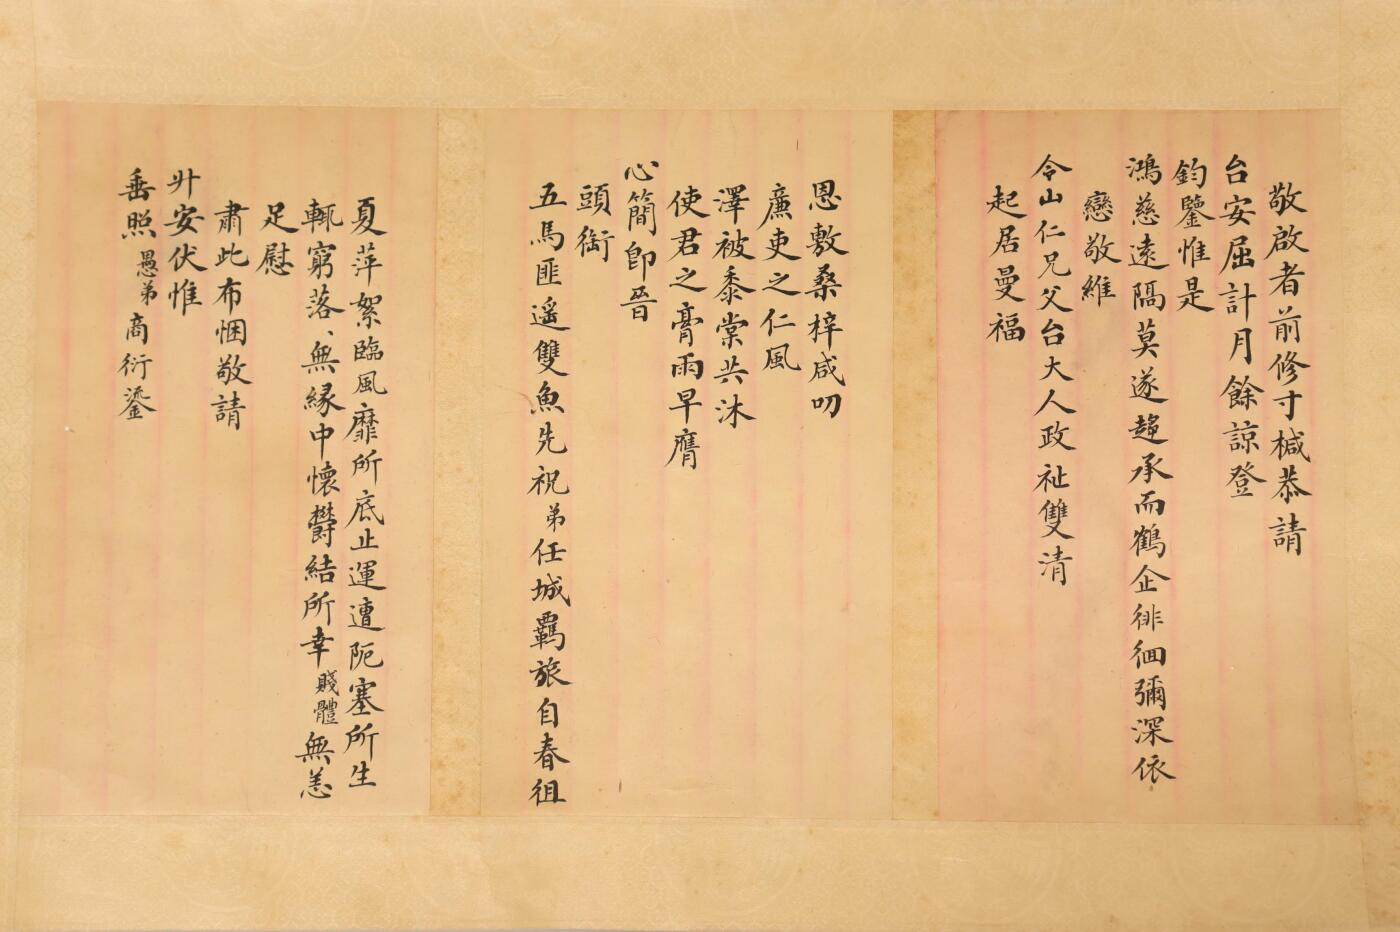 敬啟者前修寸楲恭請
台安屈計月餘諒登
鈞鑒惟是
鴻慈遠隔莫遂趨承而鶴企徘徊彌深依
戀敬維
令山仁兄父台大人政祉雙清
起居曼福
恩敷桑梓咸叨
廉吏之仁風
澤被黍棠共沐
使君之膏雨早膺
心簡即晉
頭銜
五馬匪遥雙魚先祝弟任城羈旅自春徂
夏萍絮臨風靡所底止運遭阨塞所生
輒窮落、無緣中懷欝結所幸賤體無恙
足慰
肅此布悃敬請
升安伏惟
垂照愚弟商衍鎏